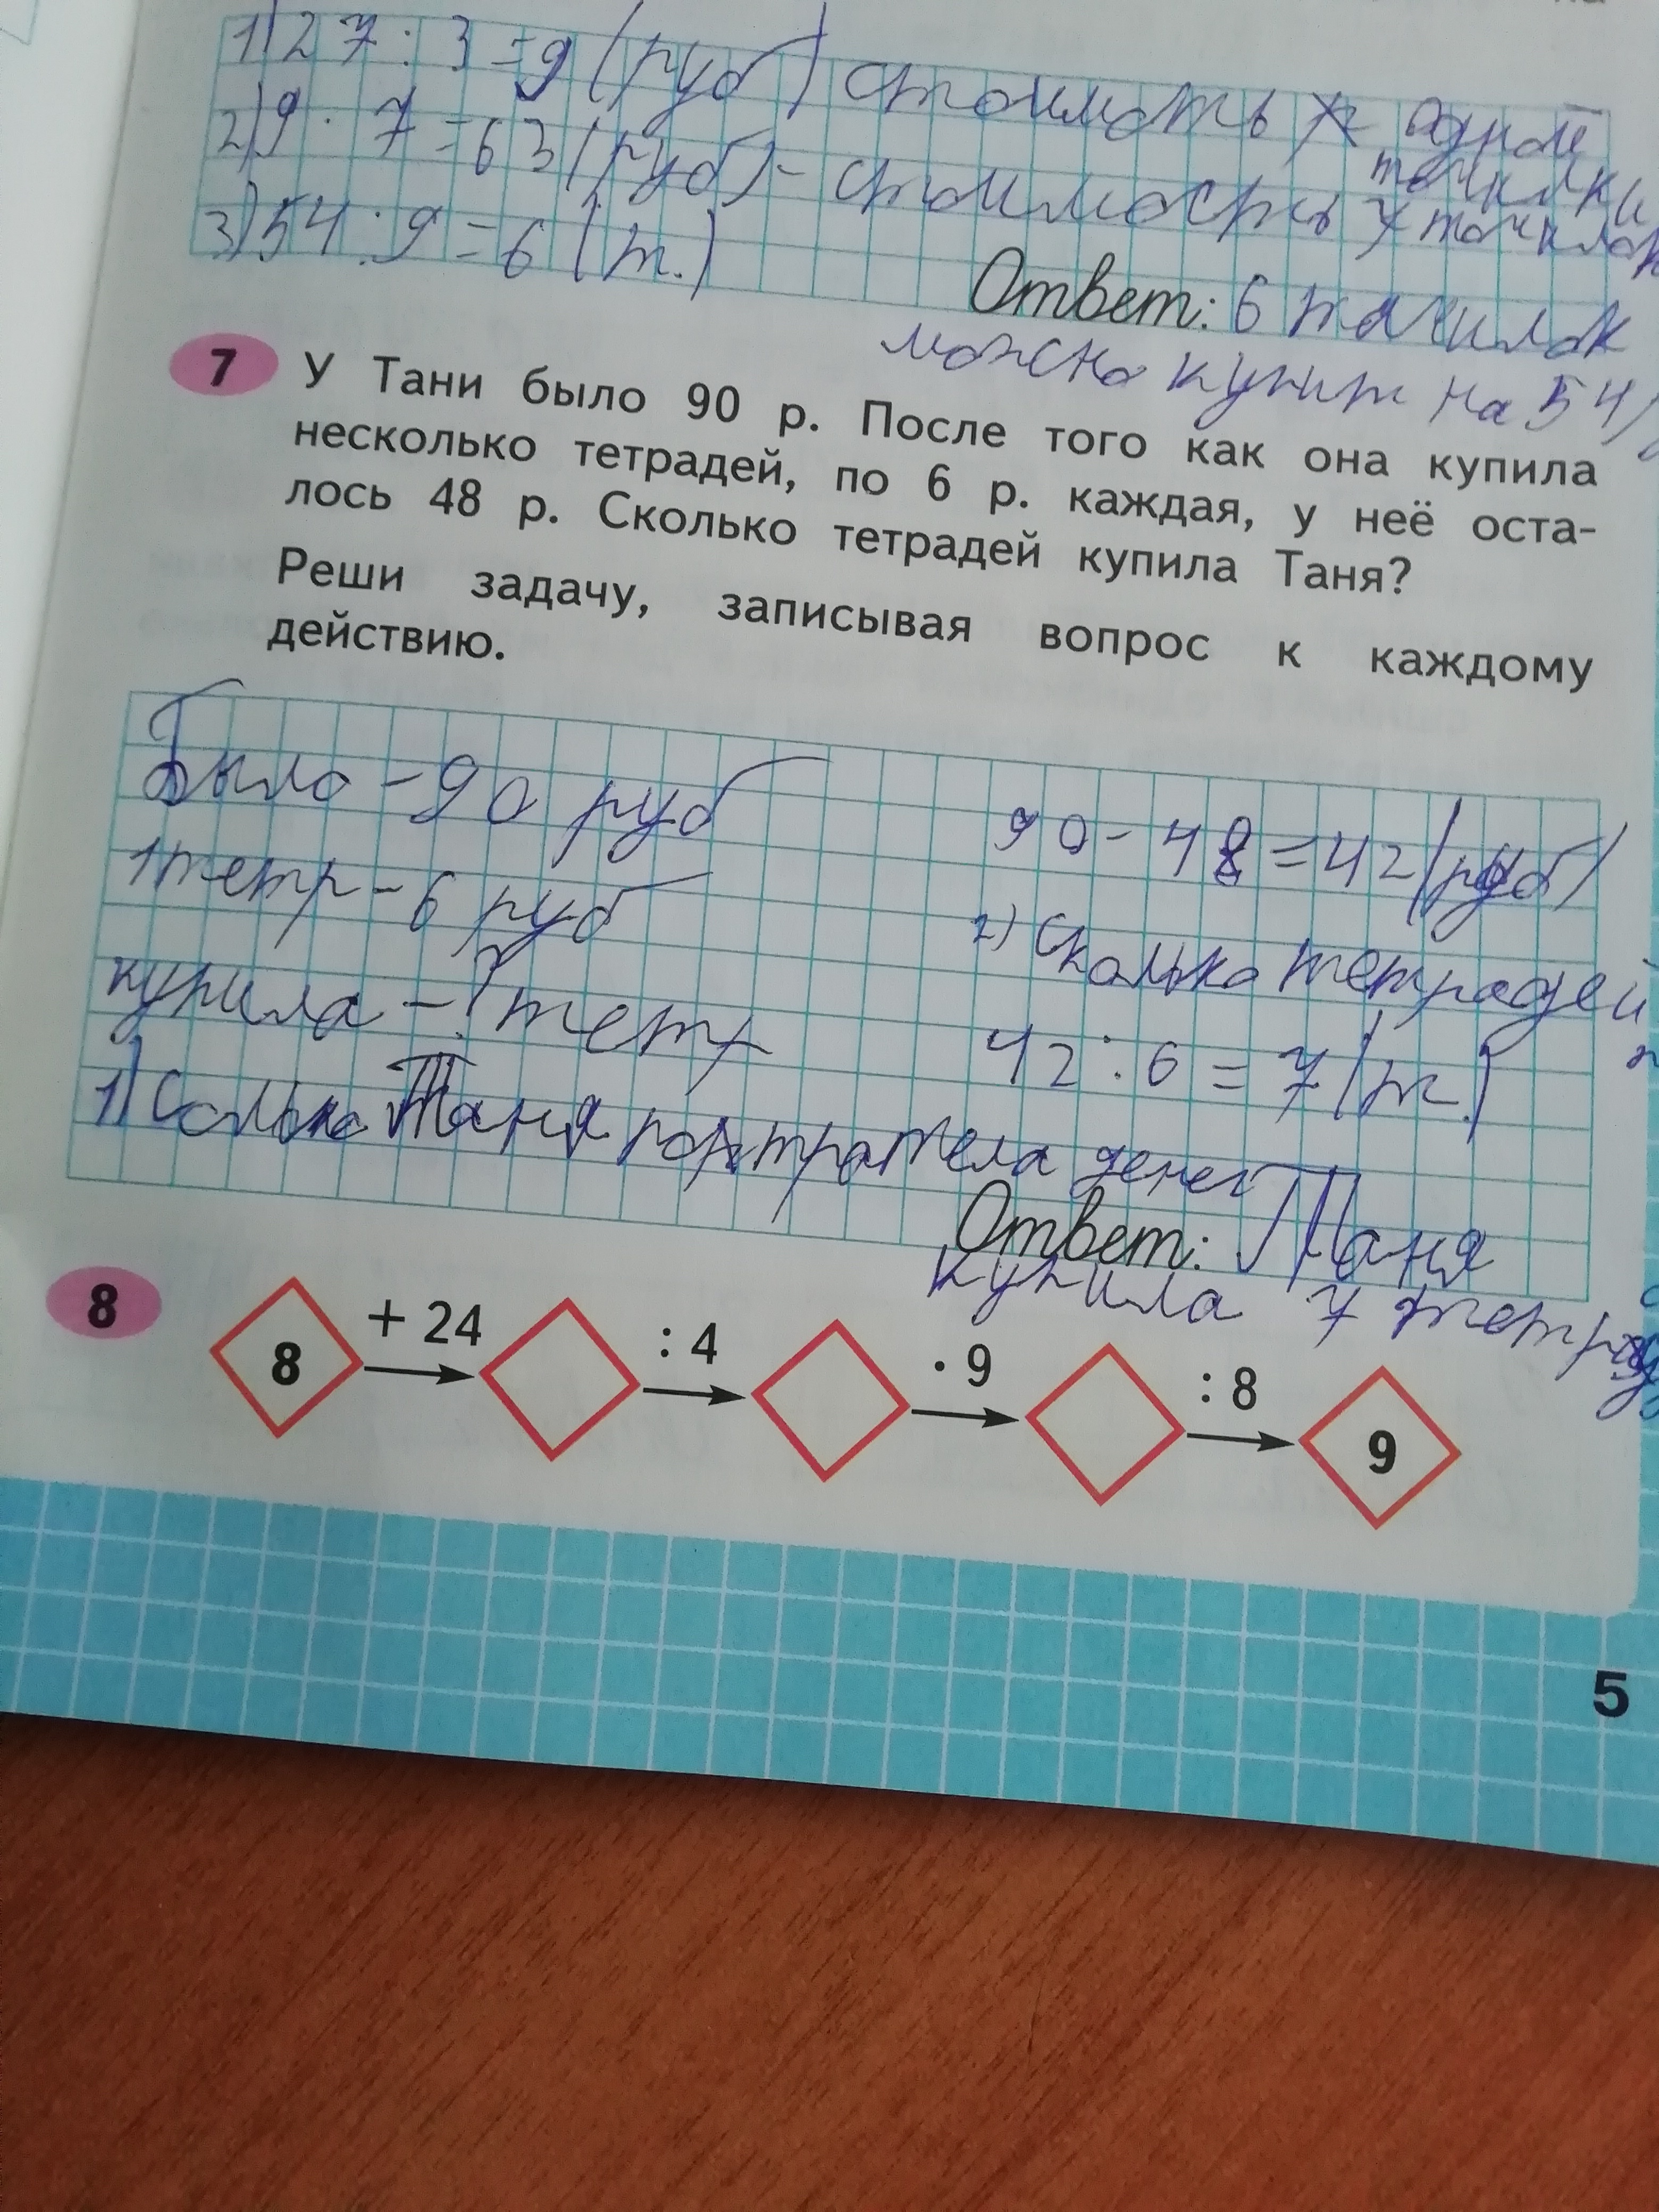 1) 27 : 3 = 9 (руб) стоимость одной
точилки
2) 9 · 7 = 63 (руб) - стоимость 7 точилок
3) 54 : 9 = 6 (т.)
Ответ: 6 тачилок
можно купит на 54
7 У Тани было 90 р. После того как она купила
несколько тетрадей, по 6 р. каждая, у неё оста-
лось 48 р. Сколько тетрадей купила Таня?
Реши задачу, записывая вопрос к каждому
действию.
Было - 90 руб
1 тетр - 6 руб
купила - ? тетр
1) Сколько Таня потратела денег
90 - 48 = 42 (руб)
2) Сколько тетрадей
42 : 6 = 7 (т.)
Ответ: Таня
купила 7 тетрад
8
8 + 24 : 4 · 9 : 8 9
5